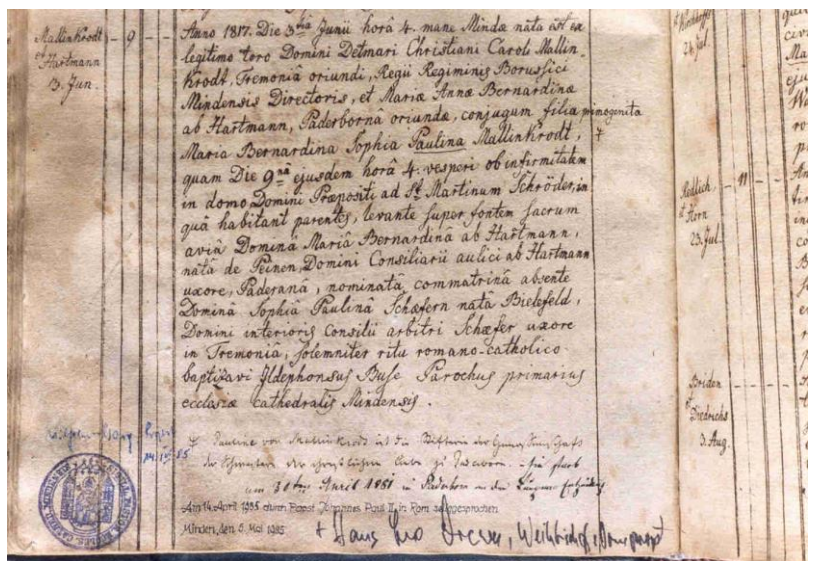 Mallinkrodt
et Hartmann
3. Jun.
9
Anno 1817. Die 3tiâ Junii horâ 4. mane Mindæ nata est ex
legitimo toro Domini Detmari Christiani Caroli Mallin-
krodt, Tremoniâ oriundi, Regii Regiminis Borussici
Mindensis Directoris, et Mariæ Annæ Bernardinæ
ab Hartmann, Paderbornâ oriundæ, conjugum filia primogenita
Maria Bernardina Sophia Paulina Mallinkrodt,
quam Die 9nâ ejusdem horâ 4. vesperi ob infirmitatem
in domo Domini Præpositi ad St Martinum Schröder, in
quâ habitant parentes, levante super fontem sacrum
aviâ Dominâ Mariâ Bernardinâ ab Hartmann,
natâ de Peinen, Domini Consiliarii aulici ab Hartmann
uxore, Paderanâ, nominatâ commatrinâ absente
Dominâ Sophiâ Paulinâ Schæfern natâ Bielefeld,
Domini interioris Consilii arbitri Schæfer uxore
in Tremoniâ, solemniter ritu romano-catholico
baptizavi Ildephonsus Buse Parochus primarius
ecclesiæ cathedralis Mindensis.
Pauline von Mallinkrodt ist die Stifterin der Genossenschaft
der Schwestern der christlichen Liebe zu Paderborn. Sie starb
am 30ten April 1881 in Paderborn an der
Am 14. April 1985 durch Papst Johannes Paul II. in Rom seliggesprochen
Minden, den 5. Mai 1985
+ Hans Leo Drewes, Weihbischof, Dompropst
24. Jul.
Redlich
et Horn
23. Jul.
11
Briden
et Diedrichs
3. Aug.